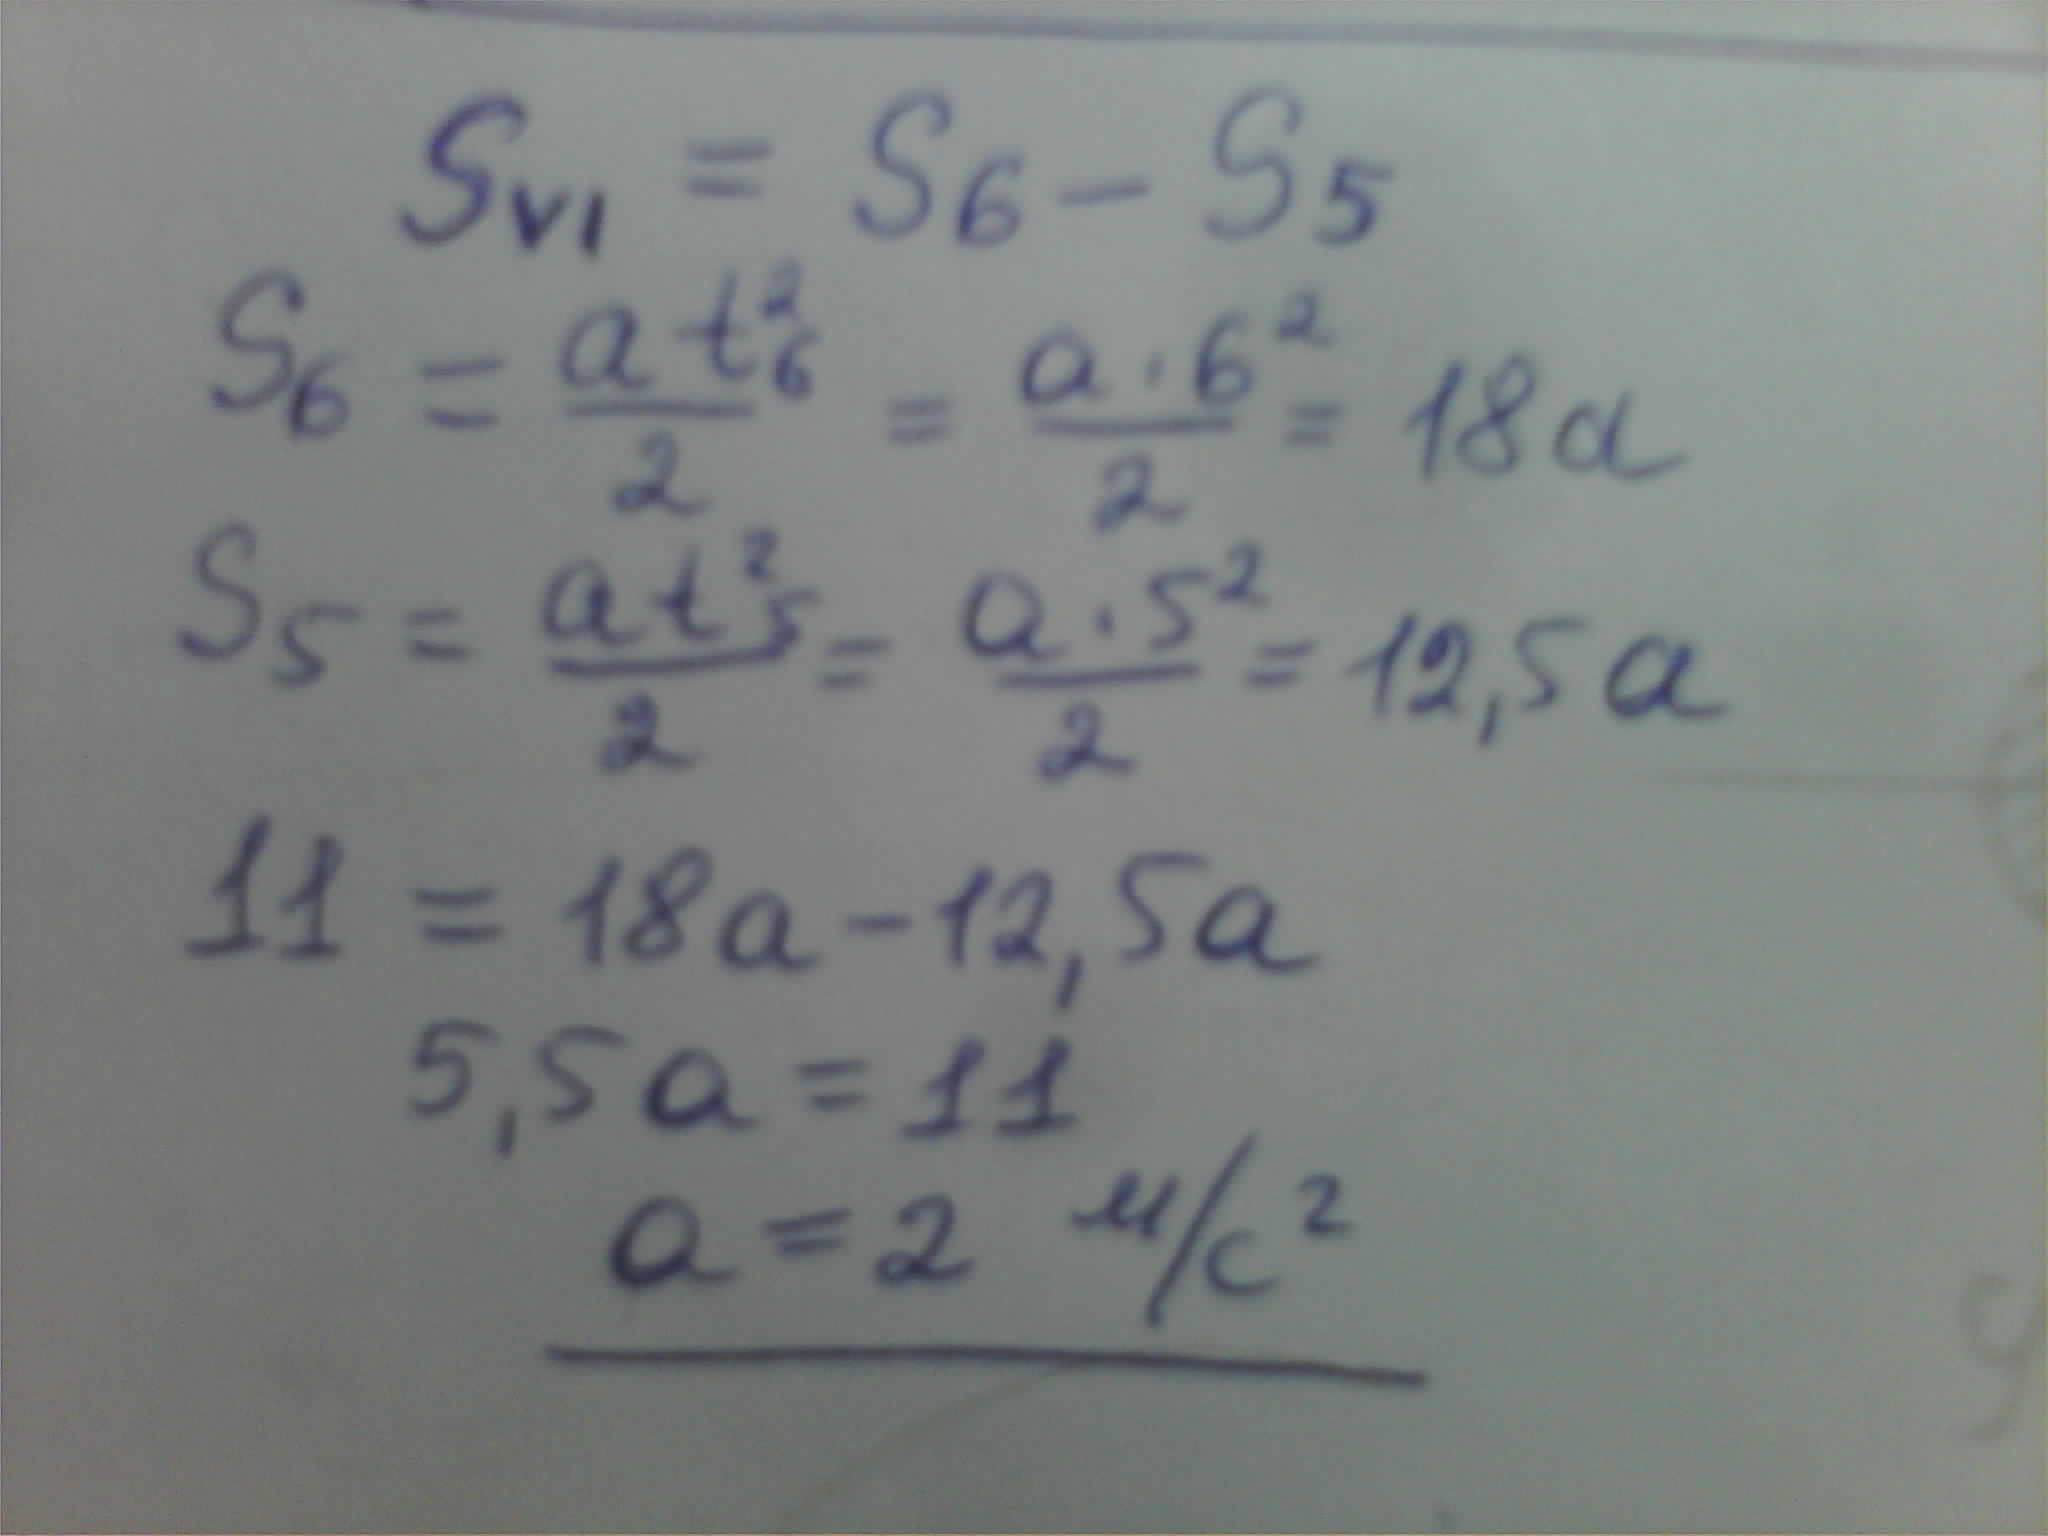 S_VI = S_6 - S_5
S_6 = at_6^2/2 = a·6^2/2 = 18a
S_5 = at_5^2/2 = a·5^2/2 = 12,5a
11 = 18a - 12,5a
5,5a = 11
a = 2 м/с^2